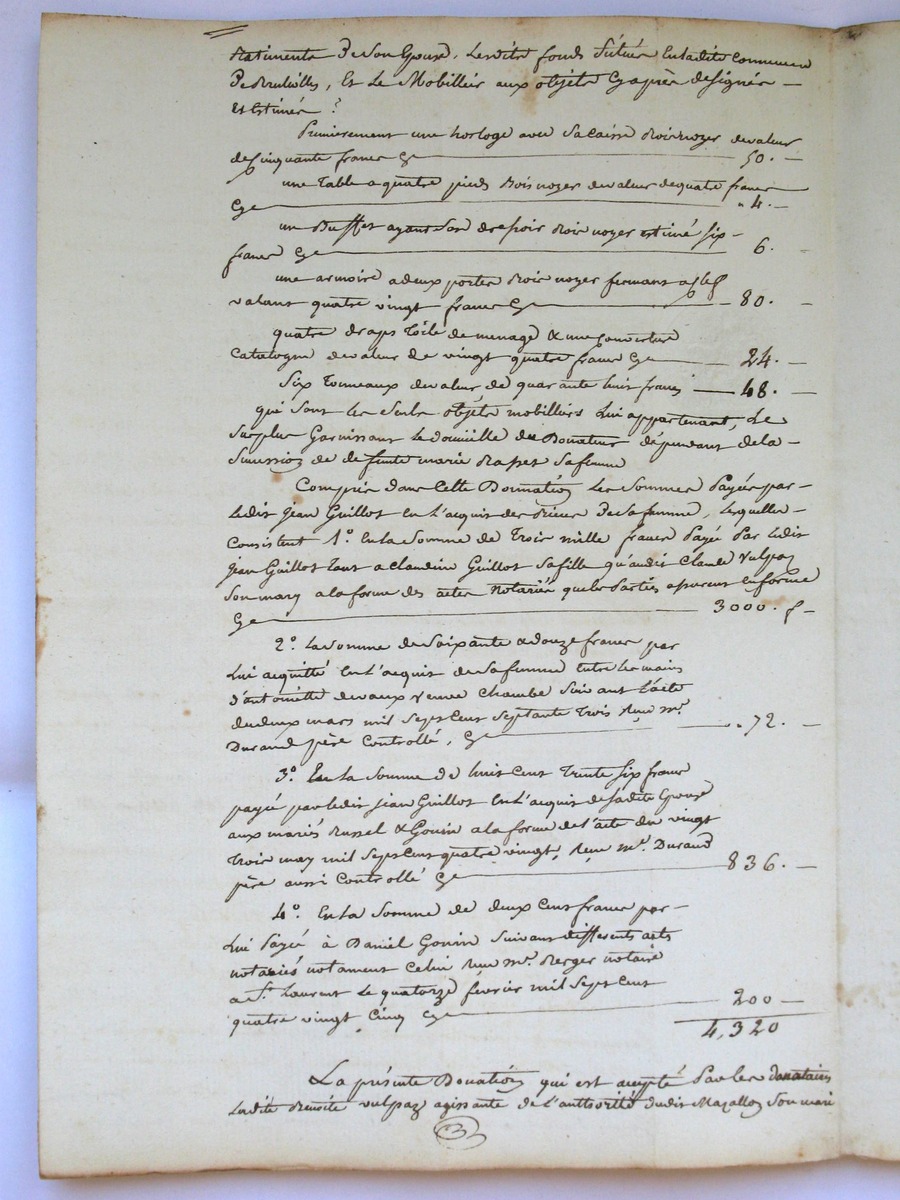 Batiments de son Epoux, lesdits fonds situés en ladite commune
De Brulliolles, et le Mobillier aux objets cy après désignés
et Estimés :
Premierement une horloge avec sa caisse bois noyer de valeur
de Cinquante francs Cy 50.
une Table a quatre pieds bois noyer de valeur de quatre francs
Cy 4.
un Buffet ayant son dressoir bois noyer estimé six
francs Cy 6.
une armoire a deux portes bois noyer fermant a clef
valant quatre vingt francs Cy 80.
quatre draps toile de menage & une couverture
Catalogne de valeur de vingt quatre francs Cy 24.
Six Tonneaux de valeur de quarante huit francs 48.
qui sont les seuls objets mobilliers lui appartenant, Le
surplus Garnissant le domicille du Donateur dépendant de la
succession de defunte marie Rasset sa femme
Compris dans Cette Donnation les sommes payées par
Ledit jean Guillot en l'acquit des dettes de sa femme, lesquelles
Consistent 1o. En la somme de Trois mille francs Payée Par ledit
jean Guillot tant a claudine Guillot sa fille qu'audit Claude Vulpaz
son mary a la forme des actes Notariés que les Parties assurent en forme
Cy 3000. f
2o. la somme de soixante & douze francs par
Lui acquitté en l'acquit de sa femme entre les mains
d'antoinette devaux veuve Chambe suivant l'acte
du deux mars mil sept cent septante trois Reçu me.
Durand père Controllé, Cy 72.
3o. En la somme de huit cent trente six francs
payée par ledit jean Guillot en l'acquit de sadite Epouse
aux mariés Russel & Gonin a la forme de l'acte du vingt
trois may mil sept cent quatre vingt, Reçu me. Durand
père aussi Controllé Cy 836.
4o. En la somme de deux cent francs par
Lui payée à Daniel Gonin suivant differents acts
notariés notament celui Reçu me. Berger notaire
a St. Laurent le quatorze février mil sept cent
quatre vingt Cinq Cy 200
4,320
La présente Donation qui est accepté Par les donataires
Ladite Benoite vulpaz agissante de l'authorité dudit Mazallon son mari
3